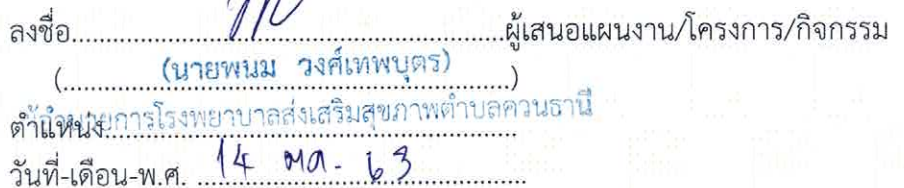 ลงชื่อ..................................................................ผู้เสนอแผนงาน/โครงการ/กิจกรรม
(นายพนม วงศ์เทพบุตร)
ตำแหน่งผู้อำนวยการโรงพยาบาลส่งเสริมสุขภาพตำบลควนธานี
วันที่-เดือน-พ.ศ. 14 ตค. 63